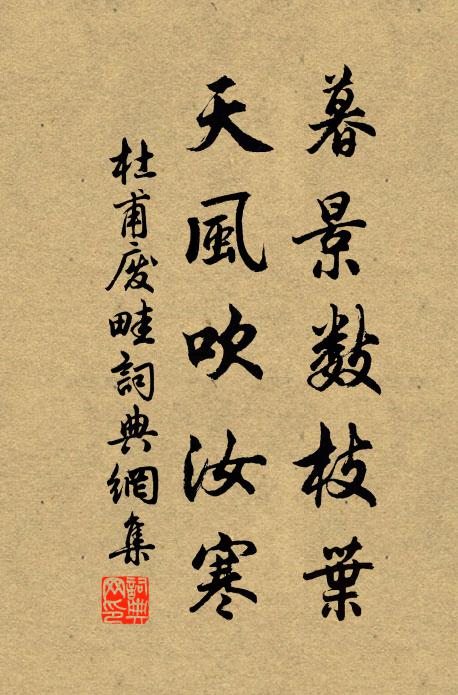 暮景數枝葉
天風吹汝寒
杜甫廢畦詞典網集
詞典网印